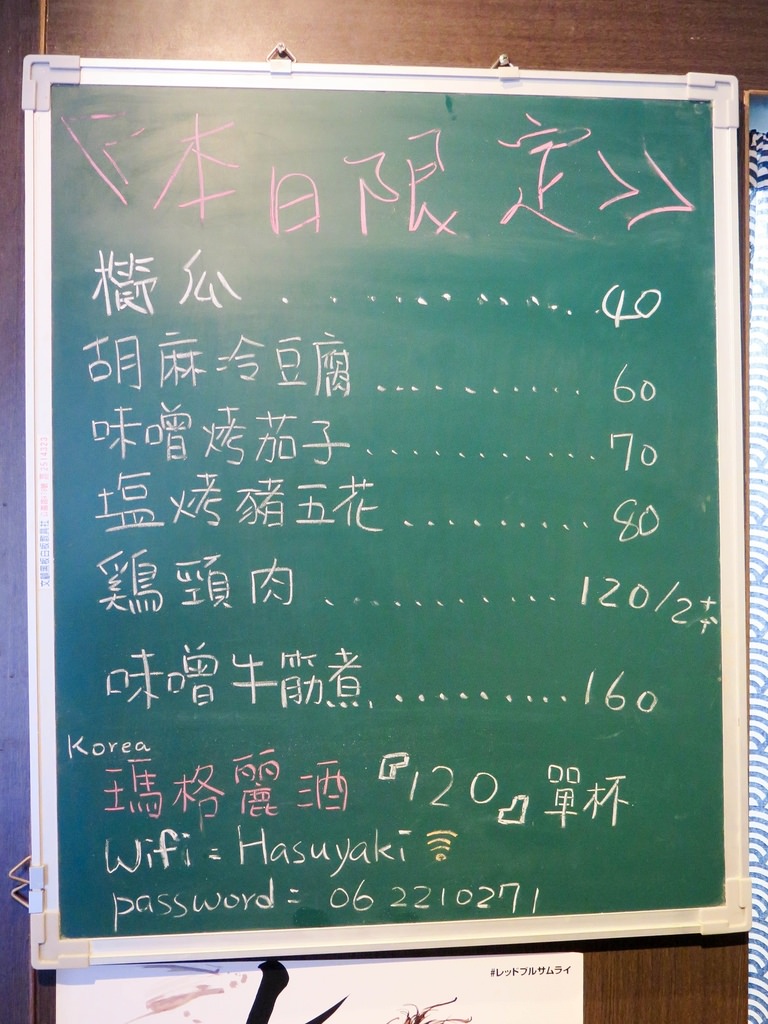 《本日限定》
櫛瓜............40
胡麻冷豆腐...........60
味噌烤茄子............70
塩烤豬五花..........80
鶏頸肉...........120/2串
味噌牛筋煮..........160
Korea
瑪格麗酒『120』單杯
Wifi = Hasuyaki
password = 06 2210271
#レッドブルサムライ